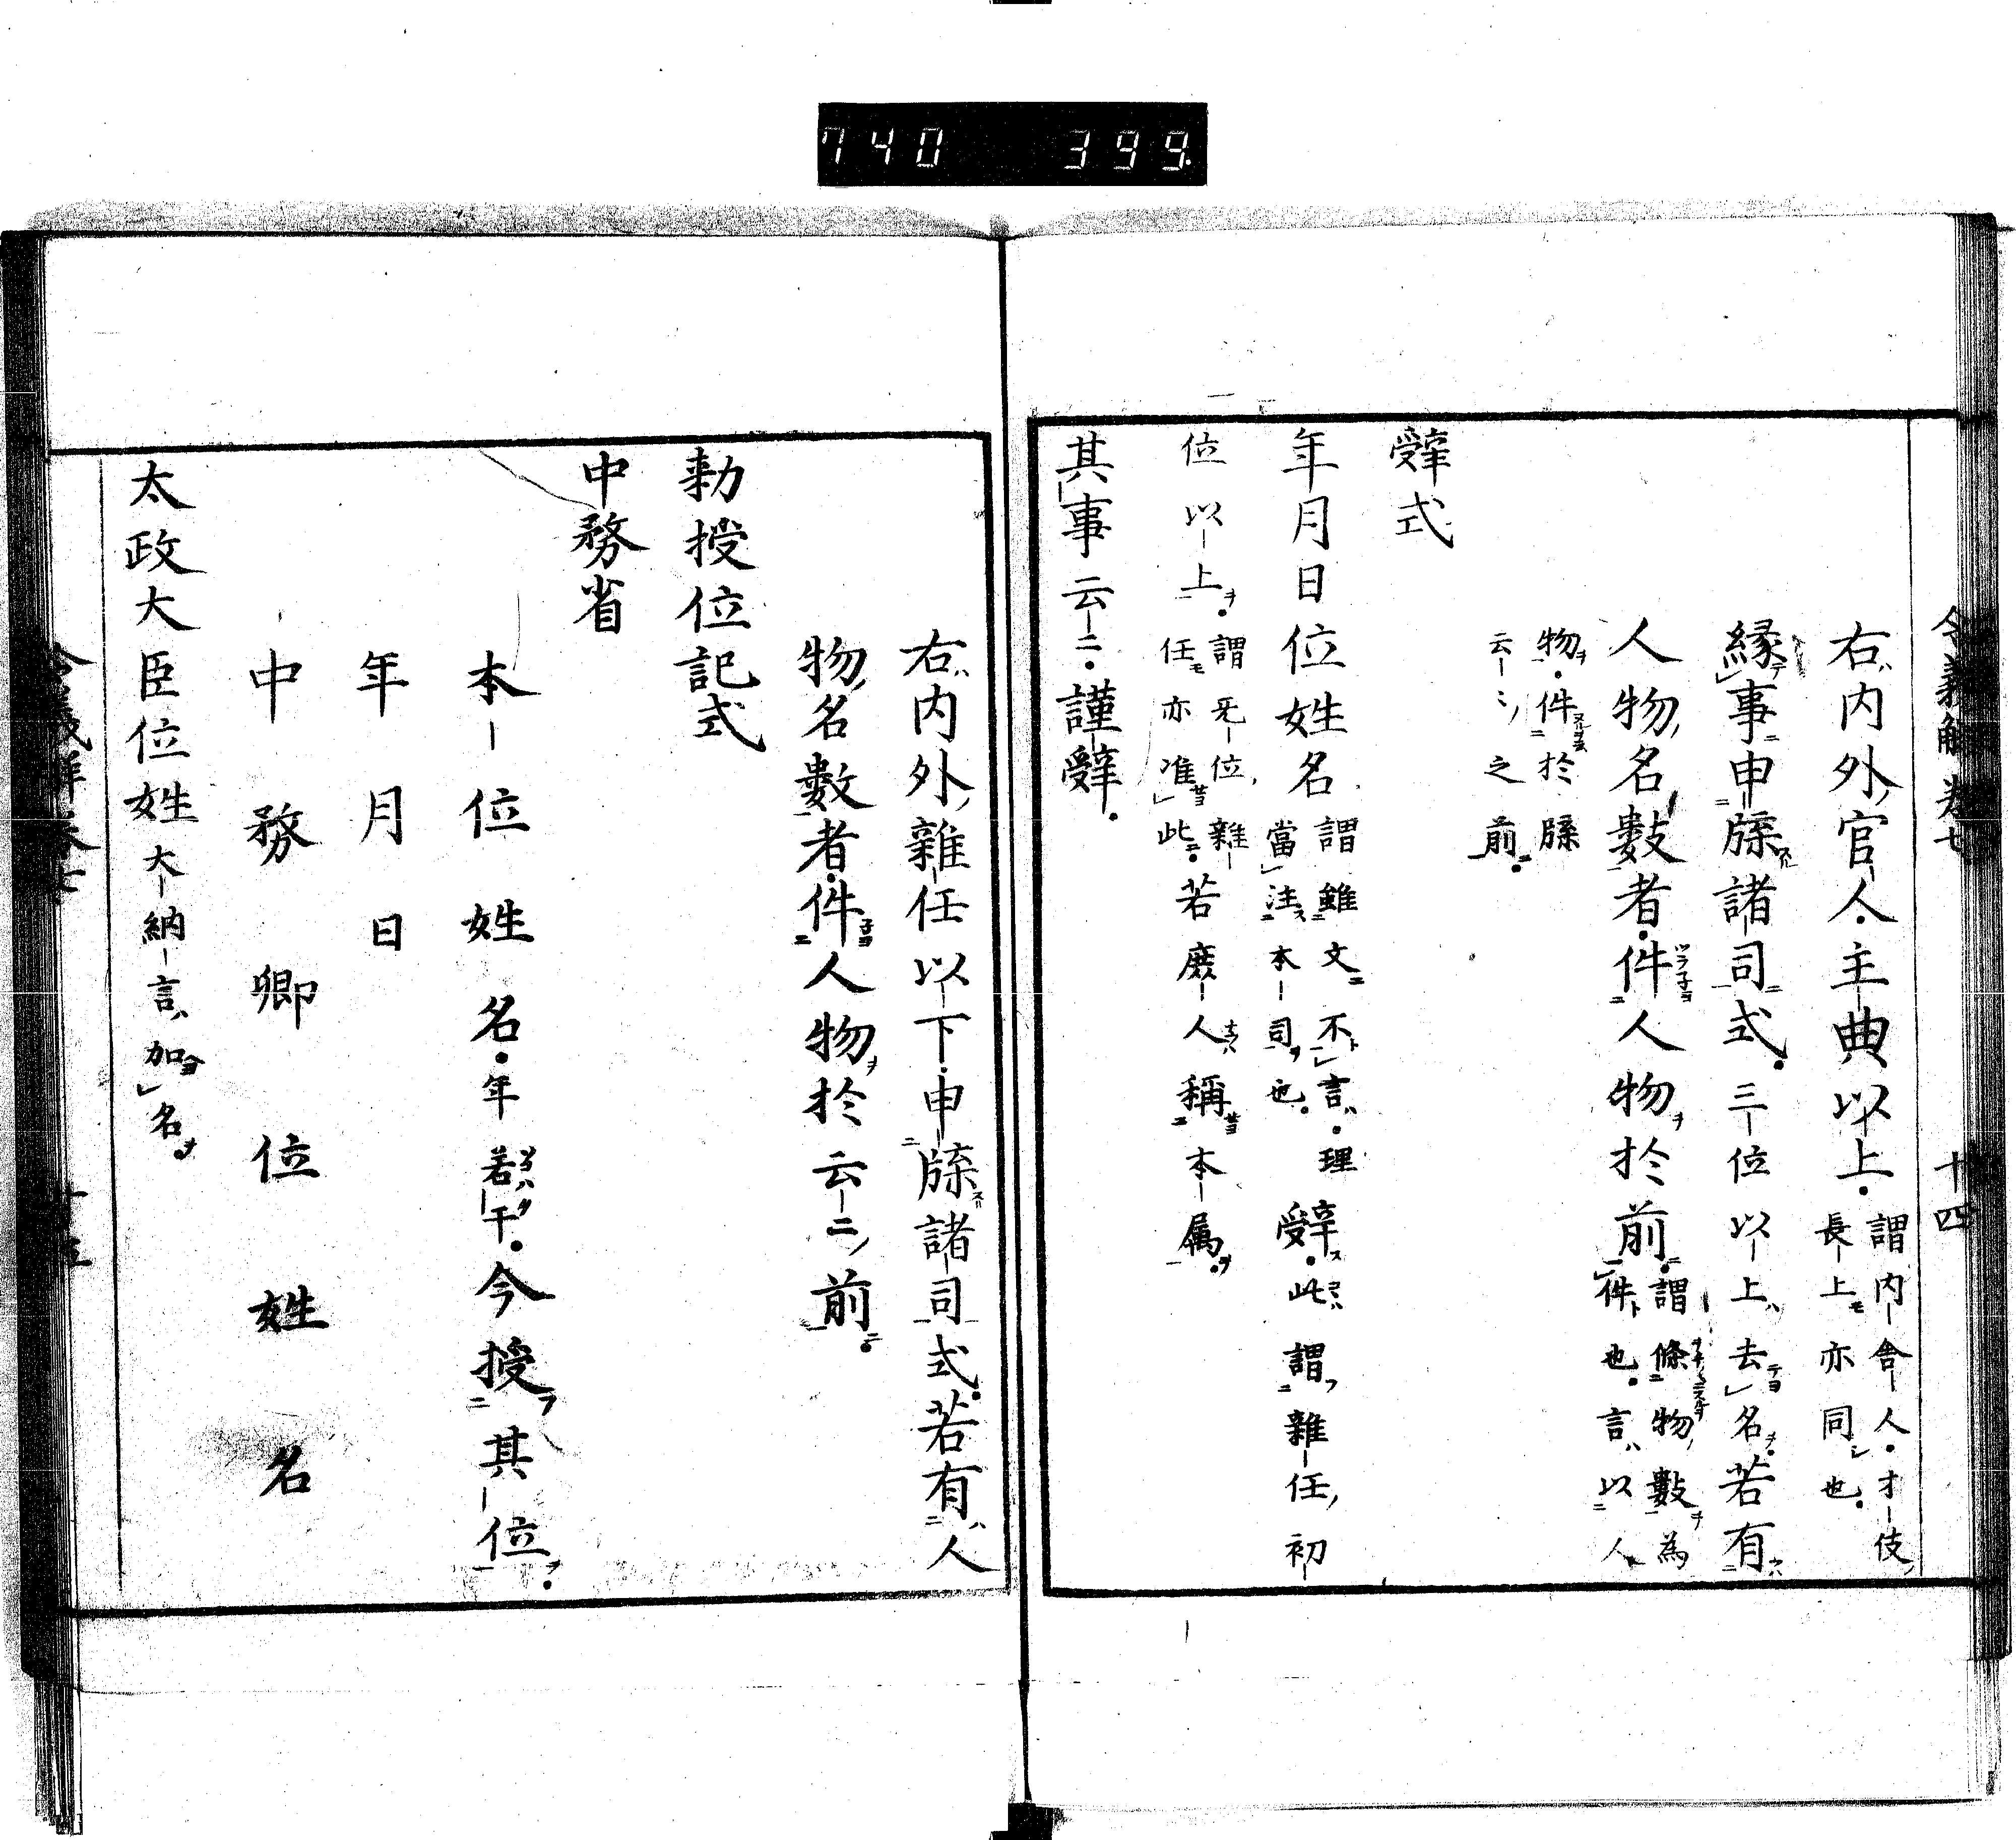 740 399
令義解卷七 十四
右内外官人主典以上謂内舍人才伎長上亦同也
縁事申牒諸司式三位以上去名若有
人物名數者件人物於前謂條物數為件也言以人
物件於牒云々之前
辭式
年月日位姓名謂雖文不言理當注本司也辭此謂雜任初
位以上謂旡位雜任亦准此若庶人稱本属
其事云云謹辭
右内外雜任以下申牒諸司式若有人
物名數者件人物於云云前
勅授位記式
中務省
本位姓名年若干今授其位
年月日
中務卿位姓名
太政大臣位姓大納言加名